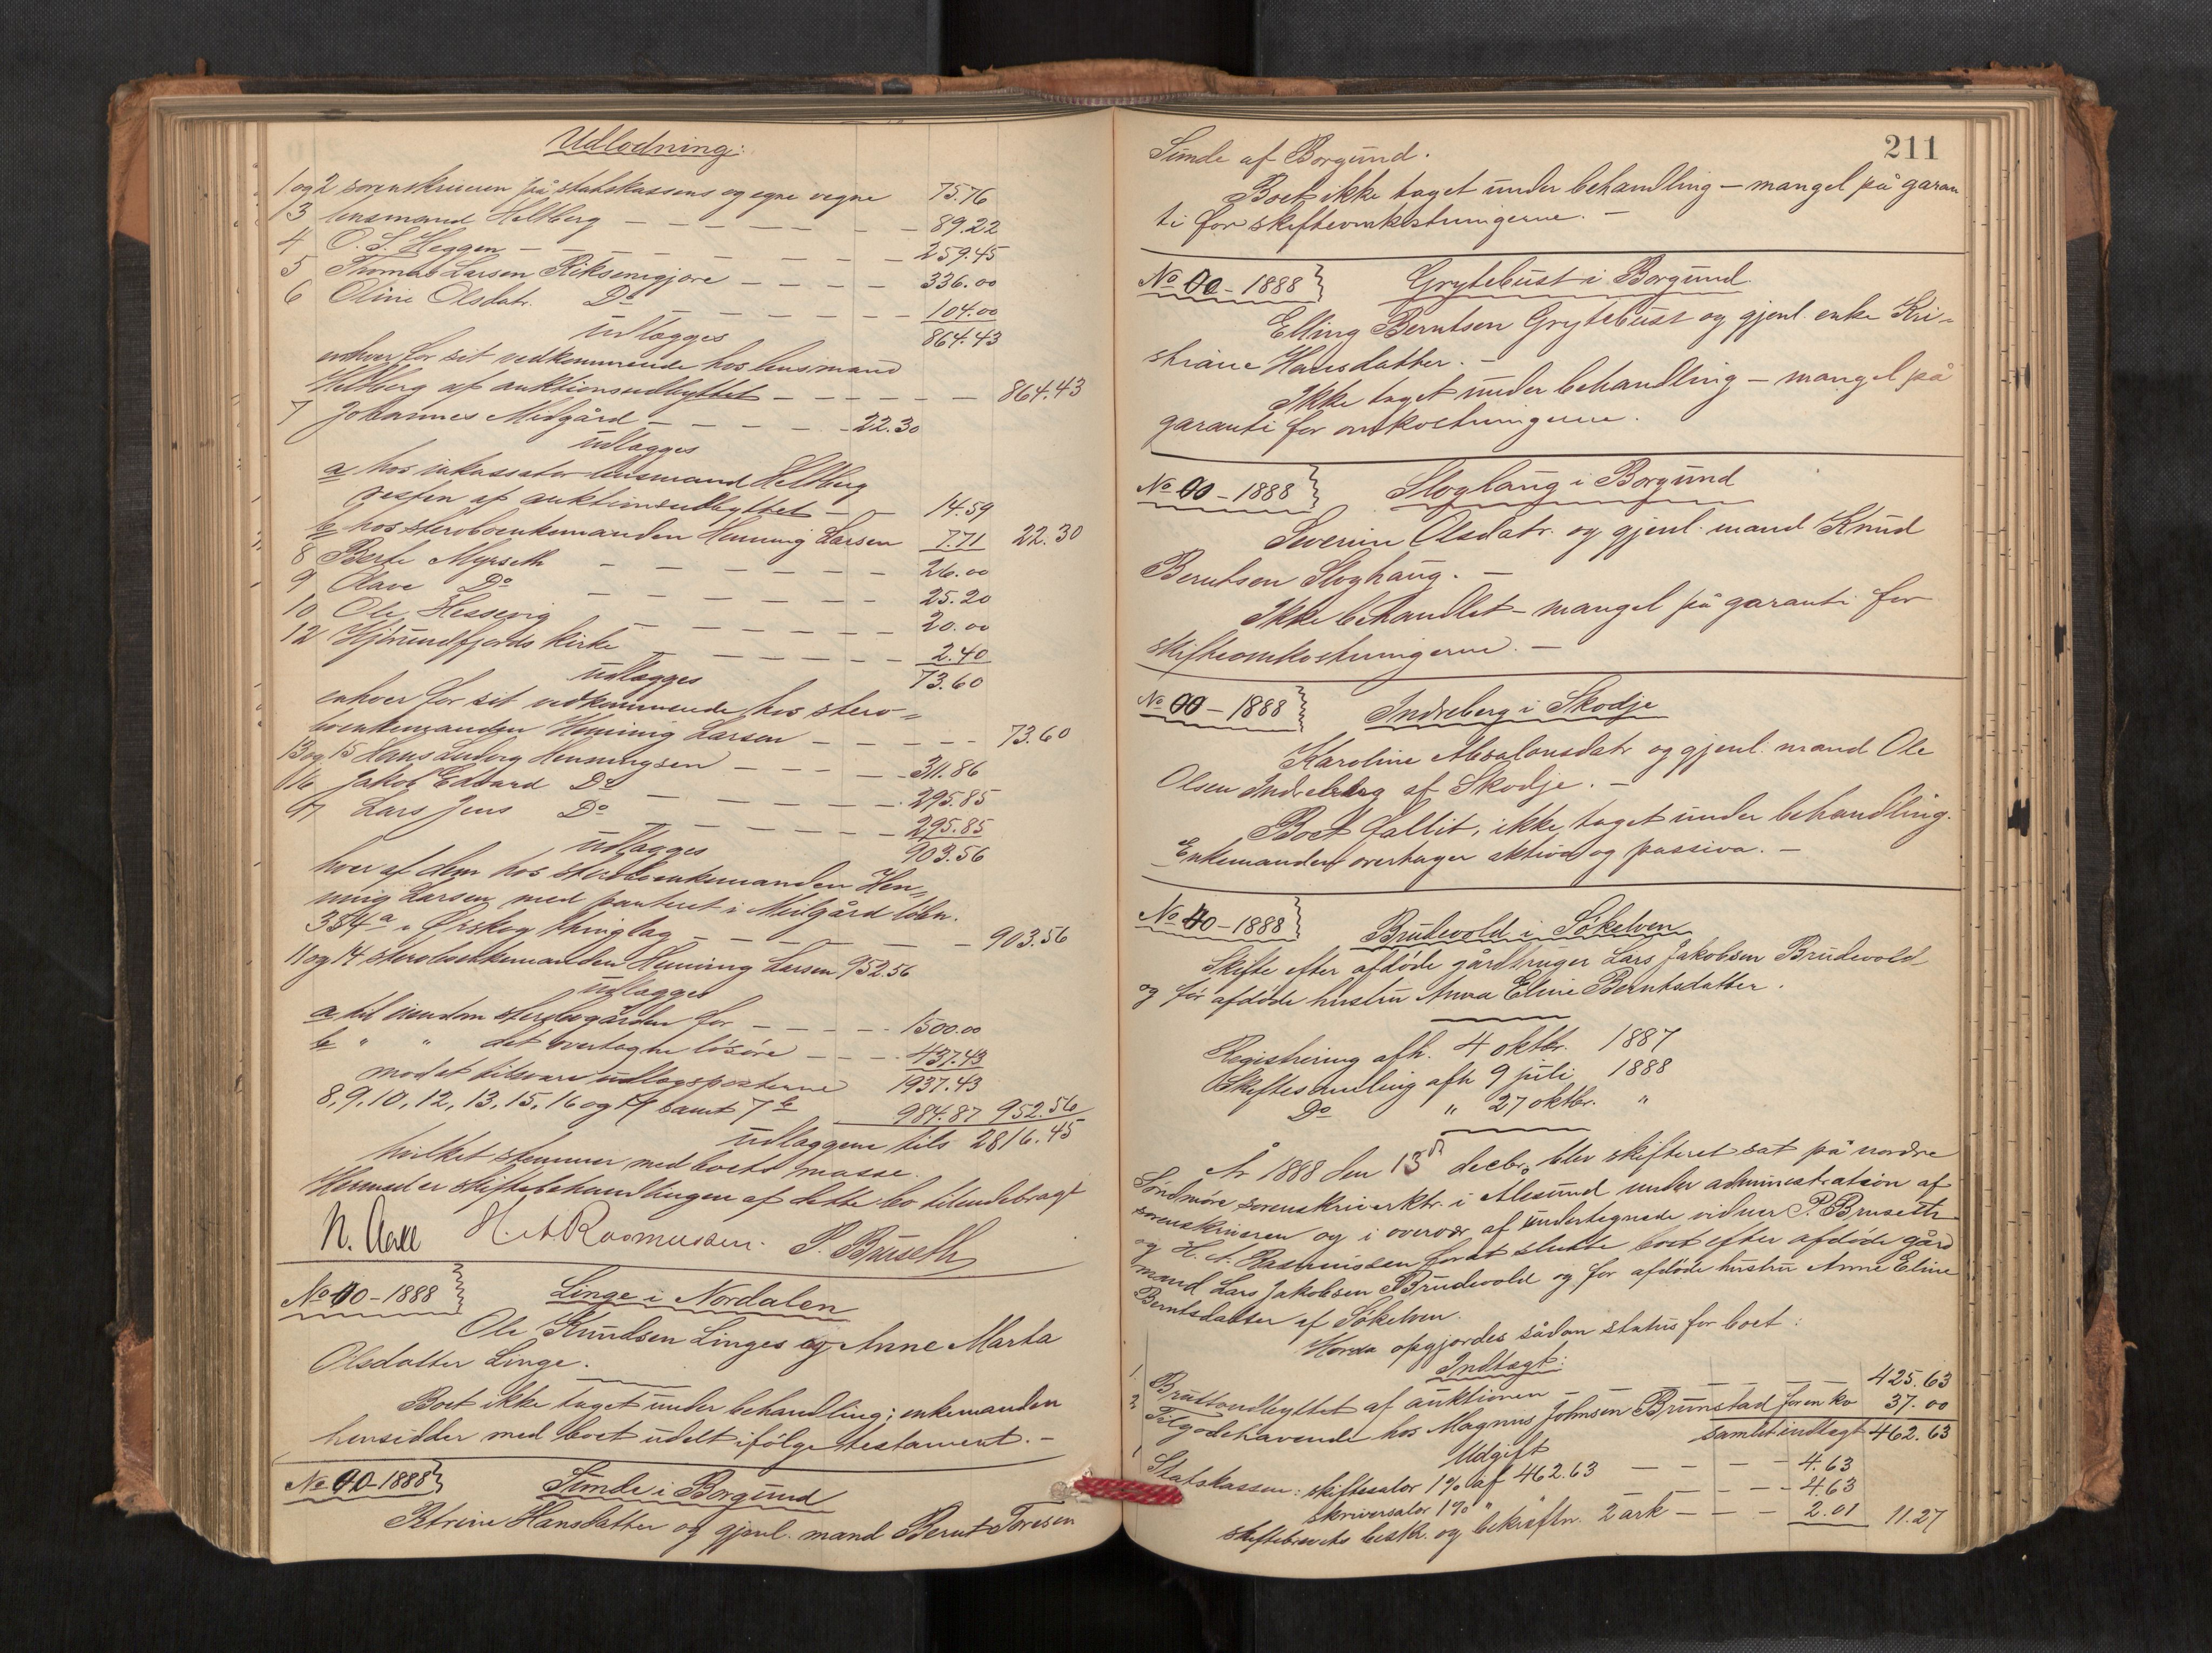 Udlodning:
1 og 2 sorenskriveren på statskassens og egne vegne 75.76
3 lensmand Hellberg — — — — — — 89.22
4 O. S. Heggen — — — — — — — 259.45
5 Thomas Larsen Riksemgjore — — — — 336.00
6 Oline Olsdatr. Do — — — — — — 104.00
udlægges 864.43
enhver for sit vedkommende hos lensmand
Hellberg af auktionsudbyttet — — — — — — 864.43
7 Johannes Midgård — — — — — 22.30
udlægges
a hos inkassator lensmand Hellberg
resten af auktionsudbyttet — — 14.59
b hos sterboenkemanden Henning Larsen 7.71 22.30
8 Berte Myrseth — — — — — — 26.00
9 Olave Do — — — — — — 25.20
10 Ole Hessevig — — — — — — 20.00
12 Hjørundfjords kirke — — — — — 2.40
udlægges 73.60
enhver for sit vedkommende hos stero-
boenkemanden Henning Larsen — — — — — 73.60
13 og 15 Hans Ludvig Henningsen — — — — 311.86
16 Jakob Edvard Do — — — — — — 295.85
17 Lars Jens Do — — — — — — 295.85
udlægges 903.56
hver af dem hos sterboenkemanden Hen-
ning Larsen med panteret i Midgård løbn.
384a i Ørskog thinglag — — — — — — 903.56
11 og 14 sterboenkemanden Henning Larsen 952.56
udlægges
a til eiendom sterbogården for — — — — 1500.00
b " " det overtagne løsøre — — — 437.43
1937.43
mod at tilsvare udlægsposterne
8, 9, 10, 12, 13, 15, 16 og 17 samt 7 b 984.87 952.56
udlæggene tils 2816.45
hvilket stemmer med boets masse.
Hermed er skiftebehandlingen af dette bo tilendebragt
N. Aall H. A. Rasmussen. P. Bruseth
No 00 - 1888 Linge i Nordalen
Ole Knudsen Linges og Anne Marta
Olsdatter Linge.
Boet ikke taget under behandling; enkemanden
hensidder med boet udelt ifölge testament. -
No 00 - 1888 Sunde i Borgund
Petrine Hansdatter og gjenl. mand Bernt Toresen
211
Sunde af Borgund.
Boet ikke taget under behandling — mangel på garan
ti for skifteomkostningerne. —
No 00 - 1888 Grytebust i Borgund.
Elling Berntsen Grytebust og gjenl. enke Kri-
stiane Hansdatter. —
Ikke taget under behandling — mangel på
garanti for omkostningerne.
No 00 - 1888 Sloghaug i Borgund
Severine Olsdatr. og gjenl. mand Knud
Berntsen Sloghaug. —
Ikke behandlet — mangel på garanti for
skifteomkostningerne. —
No 00 - 1888 Indreberg i Skodje
Karoline Absalonsdatr og gjenl. mand Ole
Olsen Indreberg af Skodje. —
Boet fallit, ikke taget under behandling.
Enkemanden overtager aktiva og passiva. —
No 40 - 1888 Brudevold i Sökelven
Skifte efter afdöde gårdbruger Lars Jakobsen Brudevold
og för afdöde hustru Anna Eline Berntsdatter.
Registrering afh. 4 oktbr. 1887
Skiftesamling afh 9 juli 1888
Do " 27 oktbr. "
År 1888 den 13de decbr. blev skifteret sat på nordre
Söndmöre sorenskriverktr. i Alesund under administration af
sorenskriveren og i overvær af undertegnede vidner P. Bruseth
og H. A. Rasmussen for at slutte boet efter afdöde gård
mand Lars Jakobsen Brudevold og för afdöde hustru Anne Eline
Berntsdatter af Sökelven.
Herda opgjordes sådan status for boet:
Indtægt:
1 Bruttoudbyttet af auktionen — — — — — — 425.63
2 Tilgodehavende hos Magnus Johnsen Brunstad for en ko 37.00
samlet indtægt 462.63
Udgift
1 Statskassen: skiftesalær 1% af 462.63 — — — — 4.63
skriversalær 1% " — — — — 4.63
skiftebrevets beskr. og bekræftn. 2 ark — — — 2.01 11.27